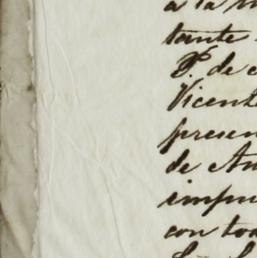 a la
tante
P. de
Vicent
presen
de An
impu
con to